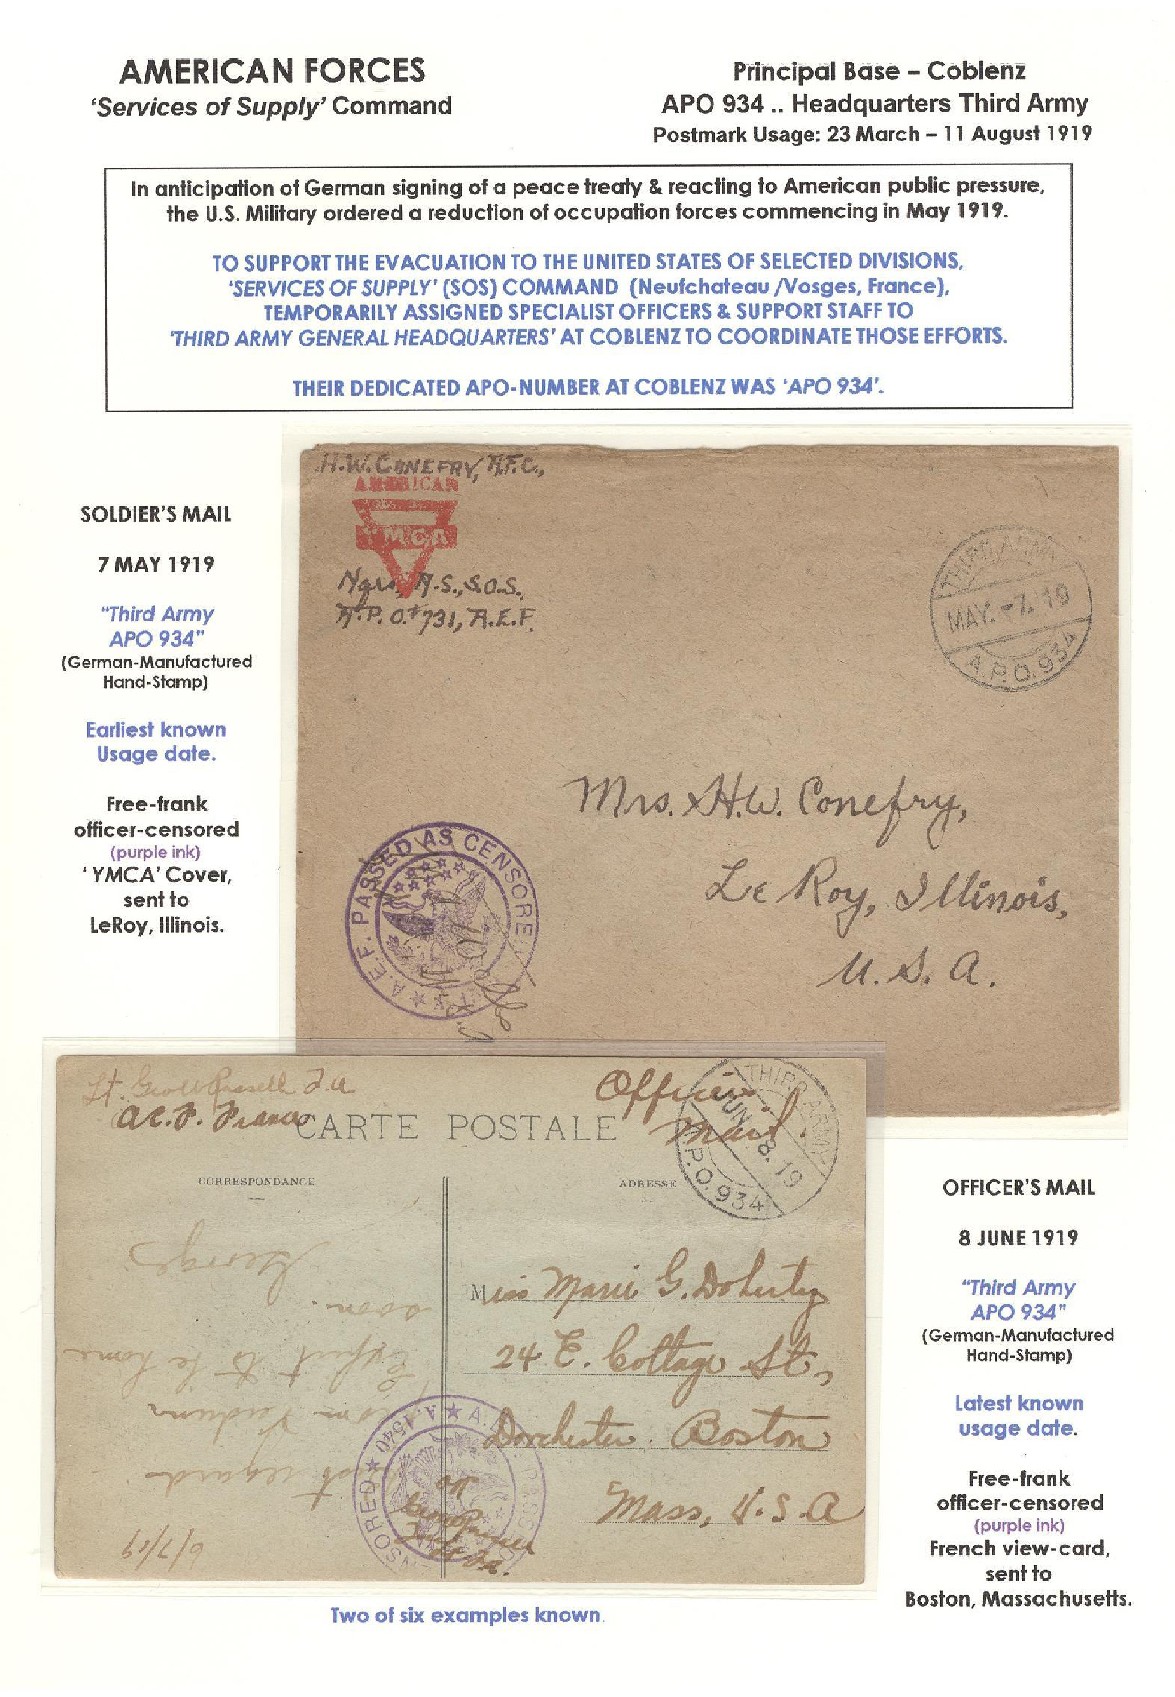 AMERICAN FORCES
'Services of Supply' Command
Principal Base – Coblenz
APO 934 .. Headquarters Third Army
Postmark Usage: 23 March – 11 August 1919
In anticipation of German signing of a peace treaty & reacting to American public pressure,
the U.S. Military ordered a reduction of occupation forces commencing in May 1919.
TO SUPPORT THE EVACUATION TO THE UNITED STATES OF SELECTED DIVISIONS,
'SERVICES OF SUPPLY' (SOS) COMMAND (Neufchateau /Vosges, France),
TEMPORARILY ASSIGNED SPECIALIST OFFICERS & SUPPORT STAFF TO
'THIRD ARMY GENERAL HEADQUARTERS' AT COBLENZ TO COORDINATE THOSE EFFORTS.
THEIR DEDICATED APO-NUMBER AT COBLENZ WAS 'APO 934'.
SOLDIER'S MAIL
7 MAY 1919
"Third Army
APO 934"
(German-Manufactured
Hand-Stamp)
Earliest known
Usage date.
Free-frank
officer-censored
(purple ink)
' YMCA' Cover,
sent to
LeRoy, Illinois.
H.W. CONEFRY, R.F.C.,
AMERICAN
YMCA
A.S., S.O.S.
A.P.O. #731, A.E.F.
THIRD ARMY
MAY. -7. 19
A.P.O. 934
Mrs. H.W. Conefry,
Le Roy, Illinois,
U.S.A.
A.E.F. PASSED AS CENSORED
Lt. Geo
A.E.F. France
Officer's
Mail.
CARTE POSTALE
THIRD ARMY
JUN. 8. 19
A.P.O. 934
CORRESPONDANCE
ADRESSE
Miss Marie G. Doherty
24 E. Cottage St.,
Dorchester. Boston
Mass, U.S.A
6/7/19
regards
from Verdun
Expect to be home
soon.
George
A.E.F. PASSED AS CENSORED A.4540
OFFICER'S MAIL
8 JUNE 1919
"Third Army
APO 934"
(German-Manufactured
Hand-Stamp)
Latest known
usage date.
Free-frank
officer-censored
(purple ink)
French view-card,
sent to
Boston, Massachusetts.
Two of six examples known.